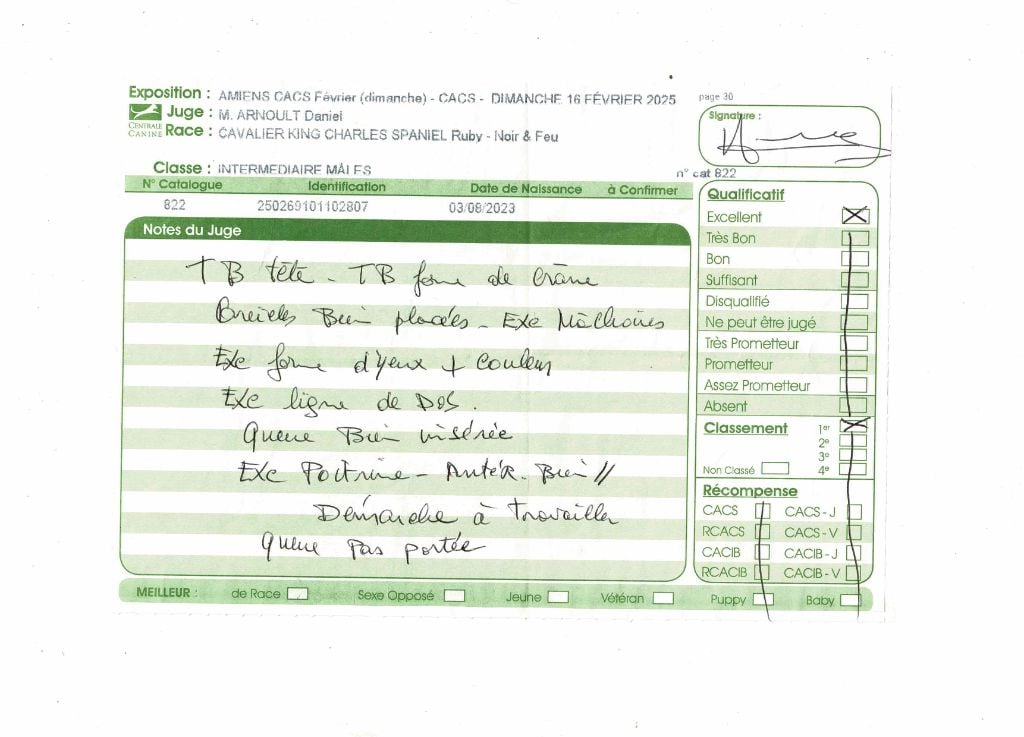 Exposition : AMIENS CACS Février (dimanche) - CACS - DIMANCHE 16 FÉVRIER 2025 page 30
CENTRALE CANINE
Juge : M. ARNOULT Daniel
Race : CAVALIER KING CHARLES SPANIEL Ruby - Noir & Feu
Signature :
Classe : INTERMEDIAIRE MÂLES
n° cat 822
N° Catalogue Identification Date de Naissance à Confirmer
822 250269101102807 03/08/2023
Notes du Juge
TB tête - TB forme de Crâne
Oreilles Bien placées - Exc Mâchoires
Exc forme d'yeux + Couleur
Exc ligne de Dos.
Queue Bien insérée
Exc Poitrine - Antér. Bien //
Démarche à travailler
Queue pas portée
Qualificatif
Excellent
Très Bon
Bon
Suffisant
Disqualifié
Ne peut être jugé
Très Prometteur
Prometteur
Assez Prometteur
Absent
Classement 1er
2e
3e
Non Classé 4e
Récompense
CACS CACS - J
RCACS CACS - V
CACIB CACIB - J
RCACIB CACIB - V
MEILLEUR : de Race Sexe Opposé Jeune Vétéran Puppy Baby